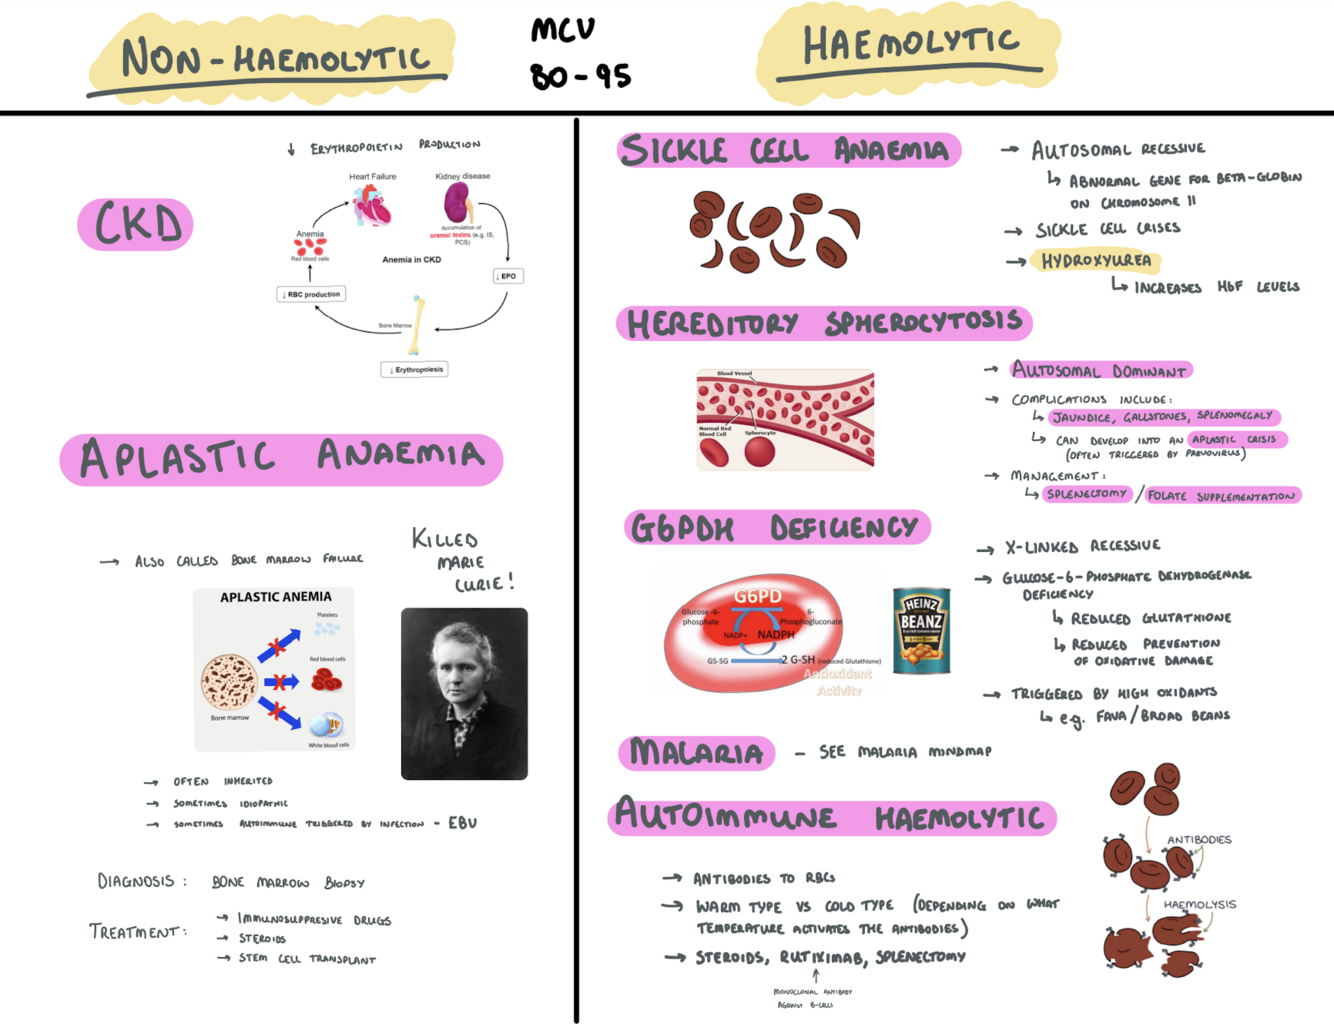 NON-HAEMOLYTIC
MCV
80-95
HAEMOLYTIC
↓ ERYTHROPOIETIN PRODUCTION
CKD
Heart Failure
Kidney disease
Accumulation of
uremic toxins (e.g. IS,
PCS)
Anemia
Red blood cells
Anemia in CKD
↓ EPO
↓ RBC production
Bone Marrow
↓ Erythropoiesis
APLASTIC ANAEMIA
→ ALSO CALLED BONE MARROW FAILURE
KILLED
MARIE
CURIE!
APLASTIC ANEMIA
Platelets
Red blood cells
Bone marrow
White blood cells
→ OFTEN INHERITED
→ SOMETIMES IDIOPATHIC
→ SOMETIMES AUTOIMMUNE TRIGGERED BY INFECTION - EBV
DIAGNOSIS: BONE MARROW BIOPSY
TREATMENT:
→ IMMUNOSUPPRESIVE DRUGS
→ STEROIDS
→ STEM CELL TRANSPLANT
SICKLE CELL ANAEMIA
→ AUTOSOMAL RECESSIVE
↳ ABNORMAL GENE FOR BETA-GLOBIN
ON CHROMOSOME 11
→ SICKLE CELL CRISES
→ HYDROXYUREA
↳ INCREASES HbF LEVELS
HEREDITORY SPHEROCYTOSIS
Blood Vessel
Normal Red
Blood Cell
Spherocyte
→ AUTOSOMAL DOMINANT
→ COMPLICATIONS INCLUDE:
↳ JAUNDICE, GALLSTONES, SPLENOMEGALY
↳ CAN DEVELOP INTO AN APLASTIC CRISIS
(OFTEN TRIGGERED BY PARVOVIRUS)
→ MANAGEMENT:
↳ SPLENECTOMY / FOLATE SUPPLEMENTATION
G6PDH DEFICIENCY
G6PD
Glucose-6-
phosphate
6-
Phosphogluconate
NADP+
NADPH
GS-SG
2 G-SH (reduced Glutathione)
Antioxidant
Activity
HEINZ
BEANZ
→ X-LINKED RECESSIVE
→ GLUCOSE-6-PHOSPHATE DEHYDROGENASE
DEFICIENCY
↳ REDUCED GLUTATHIONE
↳ REDUCED PREVENTION
OF OXIDATIVE DAMAGE
→ TRIGGERED BY HIGH OXIDANTS
↳ e.g. FAVA/BROAD BEANS
MALARIA - SEE MALARIA MINDMAP
AUTOIMMUNE HAEMOLYTIC
→ ANTIBODIES TO RBCs
→ WARM TYPE VS COLD TYPE (DEPENDING ON WHAT
TEMPERATURE ACTIVATES THE ANTIBODIES)
→ STEROIDS, RUTIXIMAB, SPLENECTOMY
MONOCLONAL ANTIBODY
AGAINST B-CELLS
ANTIBODIES
HAEMOLYSIS